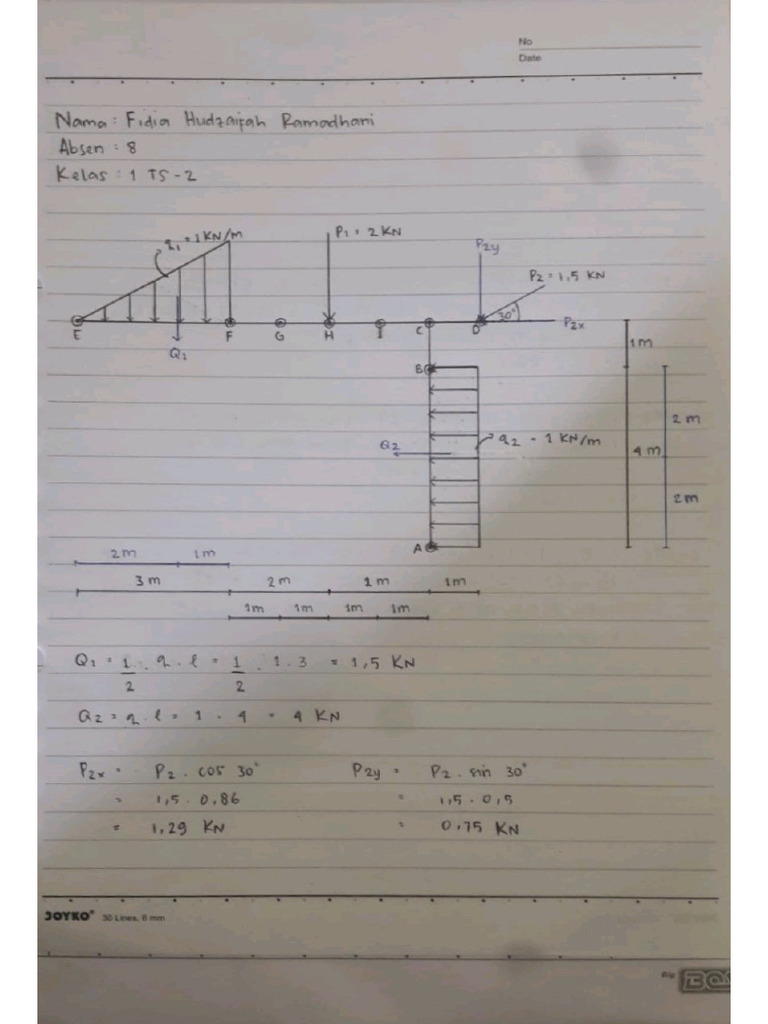 No
Date
Nama : Fidia Hudzaifah Ramadhani
Absen : 8
Kelas : 1 TS - 2
q1 = 1 KN/m
P1 = 2 KN
P2y
P2 = 1,5 KN
30°
P2x
E
F
G
H
I
C
D
Q1
1 m
B
q2 = 1 KN/m
Q2
2 m
4 m
2 m
A
2 m
1 m
3 m
2 m
2 m
1 m
1m
1m
1m
1m
Q1 = 1/2 . q . l = 1/2 . 1 . 3 = 1,5 KN
Q2 = q . l = 1 . 4 = 4 KN
P2x = P2 . cos 30°
= 1,5 . 0,86
= 1,29 KN
P2y = P2 . sin 30°
= 1,5 . 0,5
= 0,75 KN
JOYKO® 30 Lines, 8 mm